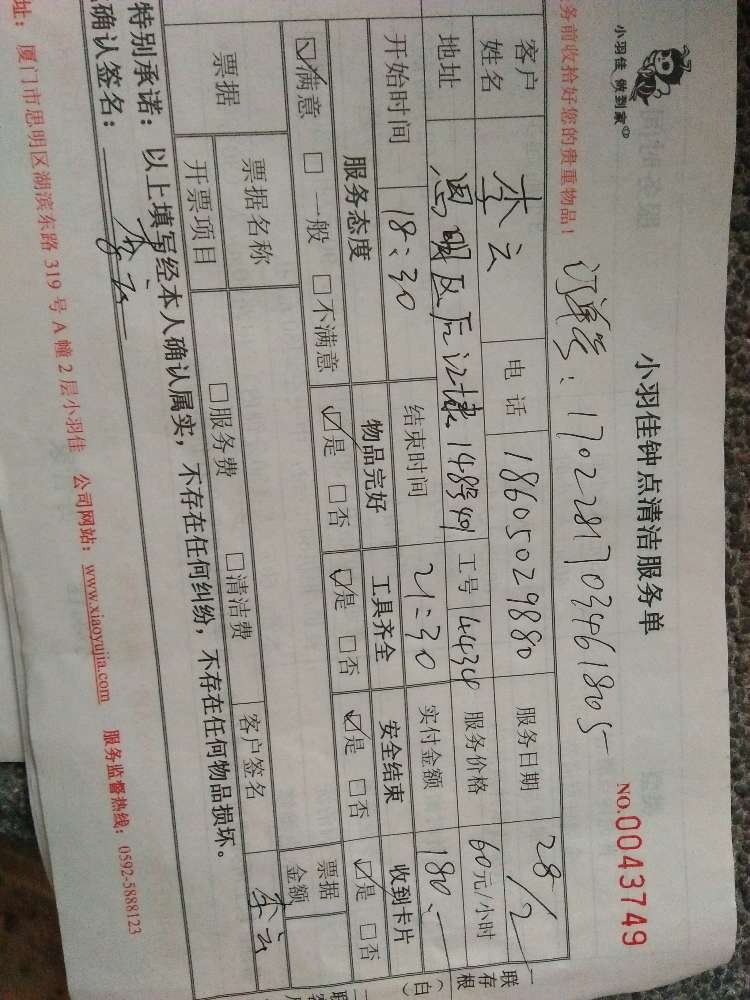 小羽佳 做到家
小羽佳钟点清洁服务单
NO.0043749
务前收拾好您的贵重物品！
订单号：1702281703461805
客户姓名 李云 电话 18605029880 服务日期 28/2
地址 思明区后江埭148号401 工号 4434 服务价格 60元/小时
开始时间 18:30 结束时间 21:30 实付金额 180.-
服务态度 物品完好 工具齐全 安全结束 收到卡片
☑满意 □一般 □不满意 ☑是 □否 ☑是 □否 ☑是 □否 ☑是 □否
票据 票据名称 票据金额
开票项目 □服务费 □清洁费 客户签名 李云
特别承诺：以上填写经本人确认属实，不存在任何纠纷，不存在任何物品损坏。
确认签名：李云
址：厦门市思明区湖滨东路 319 号 A 幢 2 层小羽佳 公司网站：www.xiaoyujia.com 服务监督热线：0592-5888123
联存根（白）